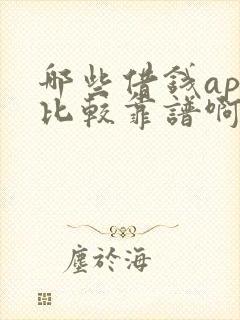 那些借錢ap
比較靠譜啊
塵於海